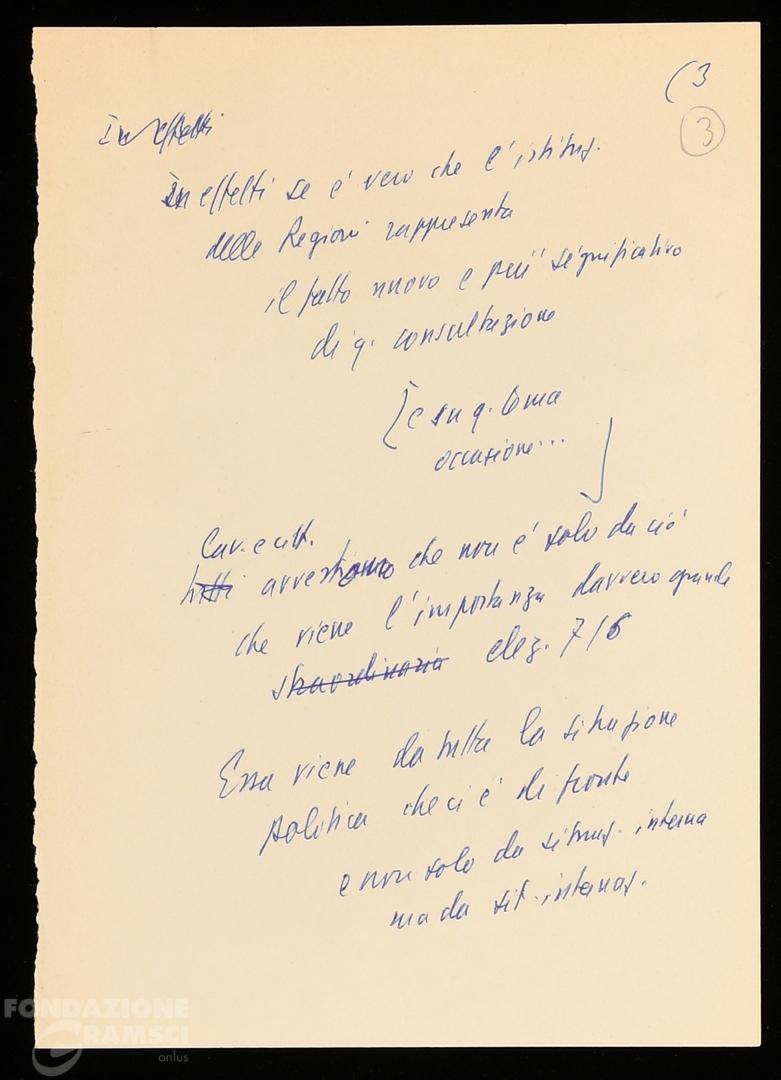 (3
3
In effetti
In effetti se è vero che l'istituz.
delle Regioni rappresenta
il fatto nuovo e più significativo
di q. consultazione
[e su q. tema
occasione...]
Car. e citt.
tutti avvertiamo che non è solo da ciò
che viene l'importanza davvero grande
straordinaria elez. 7/6
Essa viene da tutta la situazione
politica che ci è di fronte
e non solo da situaz. interna
ma da sit. internaz.
FONDAZIONE
GRAMSCI
onlus